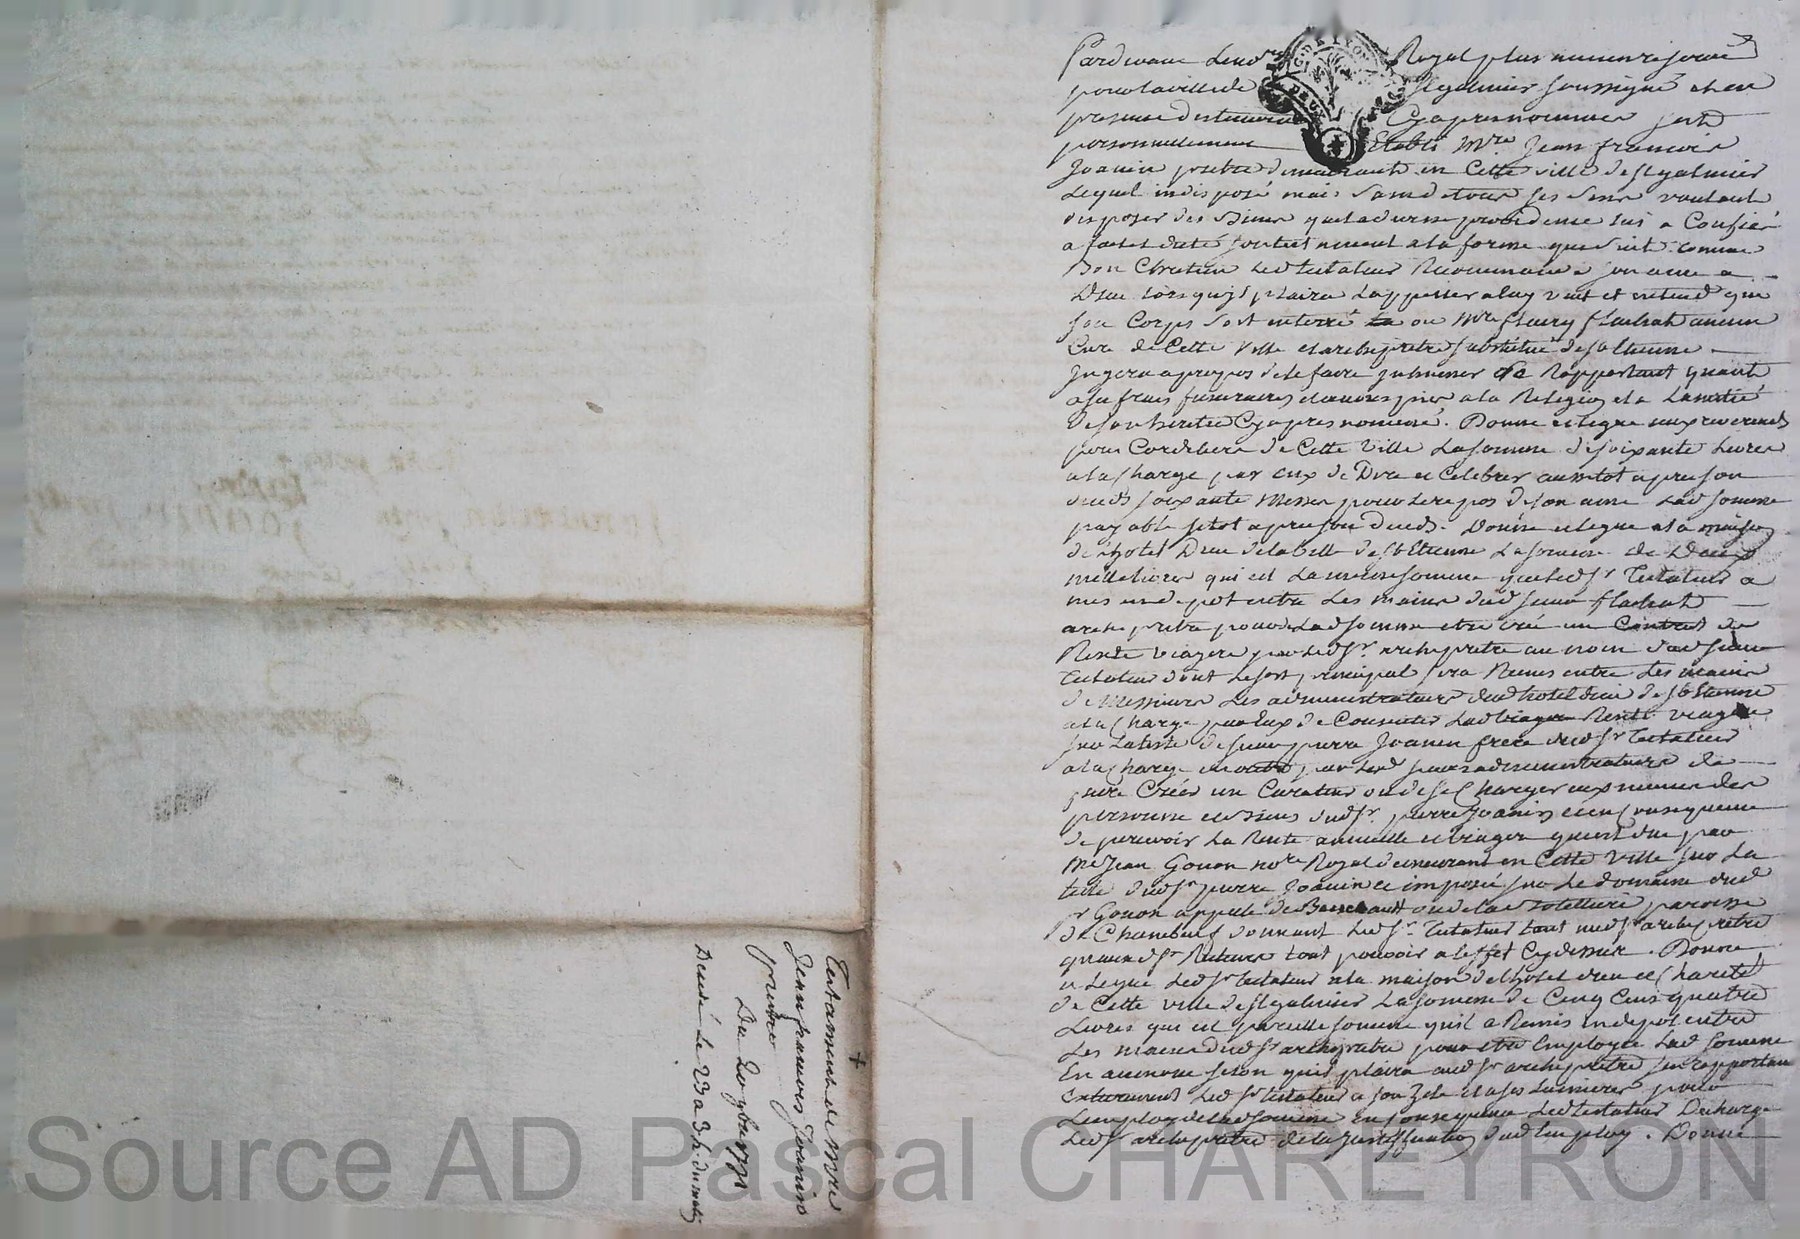 Pardevant Le no.re Royal plus ancien
pour la ville de St galmier soussigné et en
presence des temoins Cyapres nommes fut
personnellement Etabli Mre Jean francois
Joanin prestre demeurant en Cette ville de St galmier
Lequel indisposé mais Sain de tous ses Sens voulant
disposer des Biens que la divine providence lui a Confiés
a fait et dicté son testament a la forme que suit comme
Bon Chretien Led testateur Recommande son ame a
Dieu lorsquil plaira Lappeller a luy veut et entend que
son Corps soit enterré ou Mre fleury flachat ancien
Curé de Cette Ville et archipretre de St Etienne
Jugera apropos de le faire inhumer Rapportant quant
a ses frais funeraires et aumones a la Religion et a Lamitié
de son heritier Cyapres nommé. Donne et legue aux reverends
peres Cordeliers de Cette Ville La somme de soixante Livres
a la Charge par eux de Dire et Celebrer aussitot apres son
deceds soixante Messes pour le repos de son ame Lad somme
payable sitot apres son deceds. Donne et legue a la maison
de l'hotel Dieu de la ville de St Etienne La somme de Deux
mille livres qui est La meme somme que led Sr Testateur a
mis en depot entre Les mains dud sieur flachat
archipretre pour de Lad somme etre créé un Contrat de
Rente viagere par led Sr archipretre au nom dud sieur
testateur dont Le fort principal sera Remis entre Les mains
de Messieurs Les administrateurs dud hotel dieu de St Etienne
a la Charge par Eux de Lad Rente viagere
sur La teste de sieur pierre Joanin frere dud Sr Testateur
a la Charge en outre par Led sieurs administrateurs de
faire Créer un Curateur ou de se Charger eux memes des
personne et Biens dud Sr pierre Joanin et en Consequence
de percevoir La Rente annuelle et viagere qui est due par
Me Jean Gonon nore Royal demeurant en Cette Ville sur La
teste dud Sr pierre Joanin et imposée sur Le domaine dud
Sr Gonon appellé de ou de la paroisse
de Chambœuf donnant Led Sr Testateur tant aud Sr archipretre
quaud Srs Recteurs tout pouvoir a leffet Cy dessus. Donne
et Legue Led Sr testateur a la maison de lhotel dieu et Charité
de Cette ville de St galmier La somme de Cinq Cens quatre
Livres qui est pareille somme quil a Remis en depot entre
Les mains dud Sr archipretre pour etre Employée Lad somme
En aumone selon quil plaira aud Sr archipretre sen rapportant
Entierement Led Sr testateur a son Zele et a ses Lumieres pour
Lemploy de lad somme En consequence Led testateur Decharge
Led Sr archipretre de la Justification dud Employ. Donne
+
Testament de Mre
Jean francois Joanin
pretre
Du 20 xbre 1771
Decedé Le 23 a 3 h. du matin
Source AD Pascal CHAREYRON